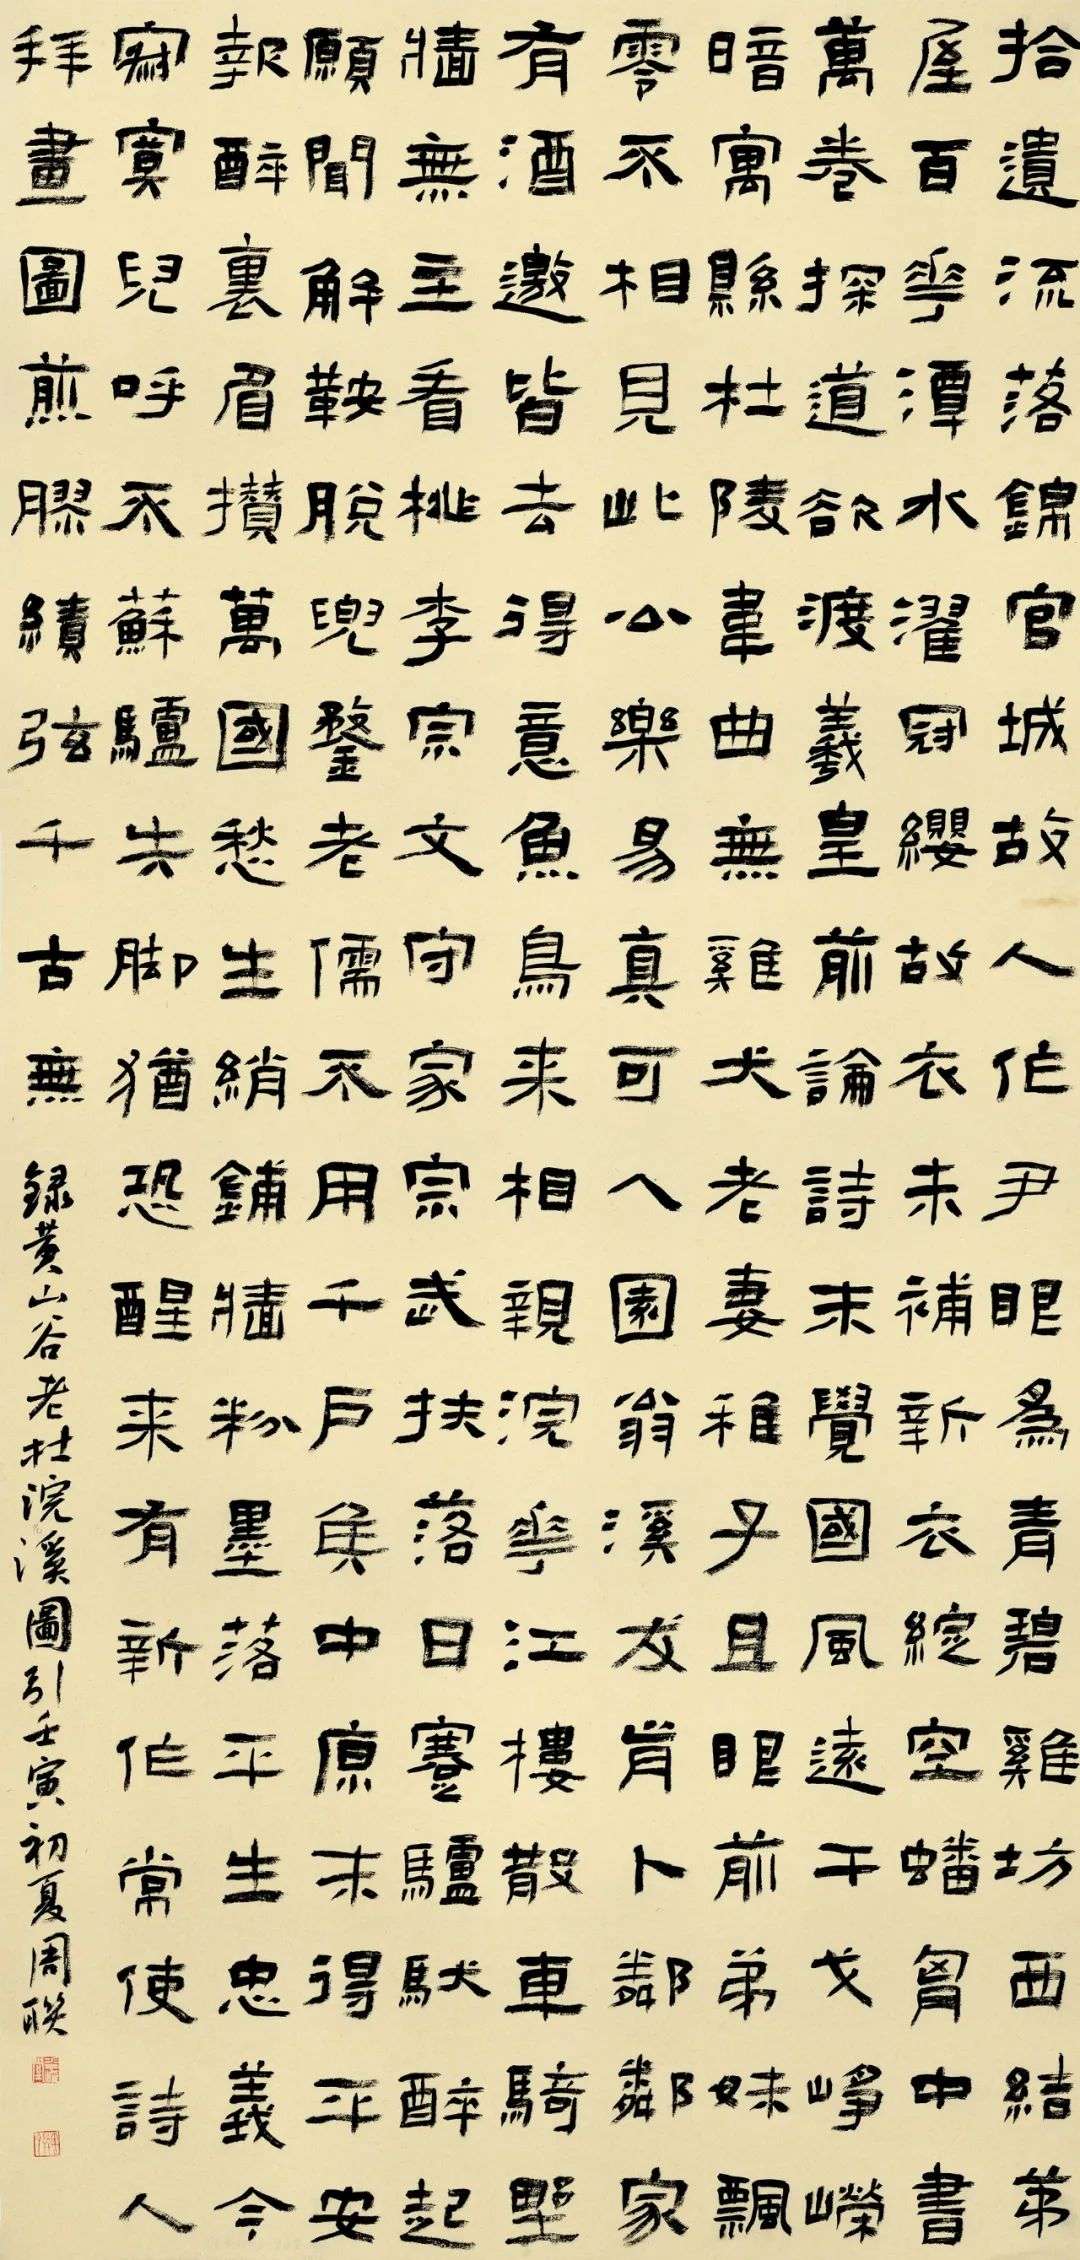 拾遺流落錦官城故人作尹眼為青碧雞坊西結茅
屋百花潭水濯冠纓故衣未補新衣綻空蟠胷中書
萬卷探道欲渡羲皇前論詩未覺國風遠干戈崢嶸
暗寓縣杜陵韋曲無雞犬老妻稚子且眼前弟妹飄
零不相見此公樂易真可人園翁溪友肯卜鄰鄰家
有酒邀皆去得意魚鳥来相親浣花江樓散車騎野
牆無主看桃李宗文守家宗武扶落日蹇驢馱醉起
願聞解鞍脫兜鍪老儒不用千戶矦中原未得平安
報醉裏眉攢萬國愁生綃鋪牆粉墨落平生忠義今
寂寞兒呼不蘇驢失脚猶恐醒来有新作常使詩人
拜畫圖煎膠續弦千古無
録黄山谷老杜浣溪圖引壬寅初夏周聯